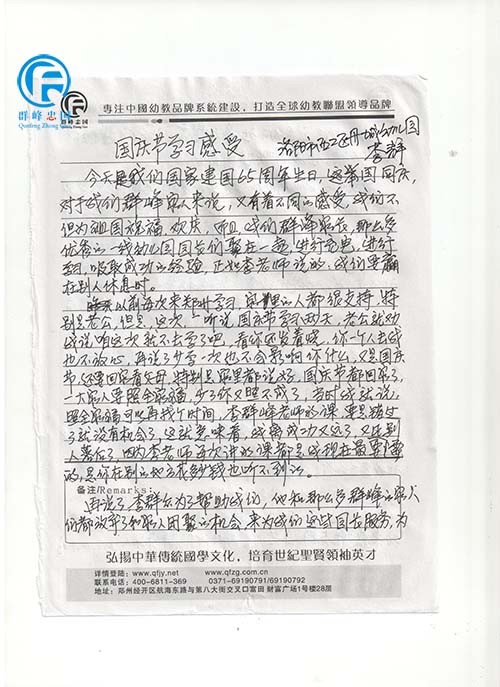 群峰忠国
Qunfeng Zhong Guo
專注中國幼教品牌系統建設，打造全球幼教聯盟領導品牌
国庆节学习感受
洛阳市西工区丹城幼儿园
李群
今天是我们国家建国65周年生日，这举国同庆，
对于我们群峰家人来说，又有着不同的感受，我们不
但为祖国祝福、欢庆，而且我们群峰家在，那么多
优秀的一线幼儿园园长们聚在一起，进行充电，进行
学习，吸取成功的经验，正如李老师说的：我们要赢
在别人休息时。
以前每次来郑州学习，家里的人都很支持，特
别是老公，但是，这次一听说国庆节学习两天，老公就劝
我说，咱这次就不去学了吧，看你还发着烧，你一个人去我
也不放心，再说了少学一次也不会影响你什么，又是国庆
节，还要回家看父母，特别是家里都说好，国庆节都回来了，
一大家人要照全家福，少了你又照不成了，当时我就说，
照全家福可以再找个时间，李群峰老师的课，要是错过
了就没有机会了，这就意味着，我离成功又远了，又比别
人落后了，因为李老师每次讲的课都是我现在最要懂
的，是你在别的地方花钱也听不到的。
备注/Remarks:
再说了，李群峰为了帮助我们，他和那么多群峰的家人
们都放弃了和家人团聚的机会，来为我们这些园长服务，为
弘揚中華傳統國學文化，培育世紀聖賢領袖英才
详情登陆：www.qfjy.net www.qfzg.com.cn
联系电话：400-6811-369 0371-69190791/69190792
地址：郑州经开区航海东路与第八大街交叉口富田 财富广场1号楼28层